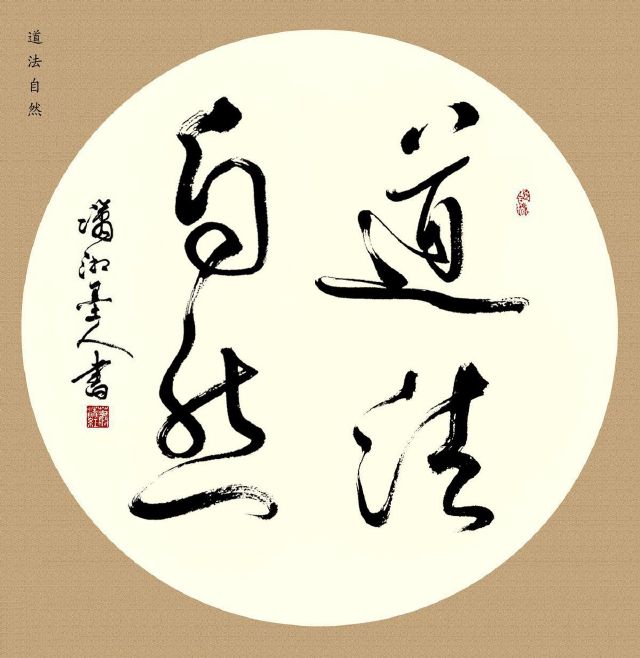 道法自然
道法
自然
潇湘墨人书